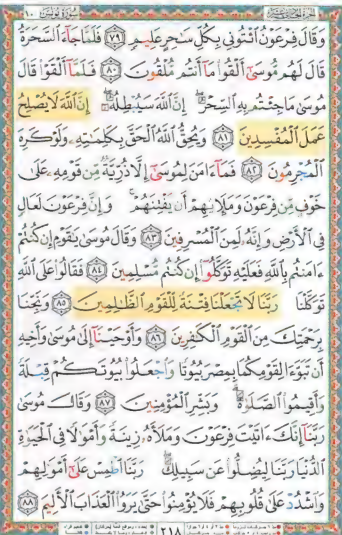 سورة يونس ١٠
وَقَالَ فِرْعَوْنُ ٱئْتُونِى بِكُلِّ سَـٰحِرٍ عَلِيمٍ ٧٩ فَلَمَّا جَآءَ ٱلسَّحَرَةُ
قَالَ لَهُم مُّوسَىٰٓ أَلْقُوا۟ مَآ أَنتُم مُّلْقُونَ ٨٠ فَلَمَّآ أَلْقَوْا۟ قَالَ
مُوسَىٰ مَا جِئْتُم بِهِ ٱلسِّحْرُ ۖ إِنَّ ٱللَّهَ سَيُبْطِلُهُۥٓ ۖ إِنَّ ٱللَّهَ لَا يُصْلِحُ
عَمَلَ ٱلْمُفْسِدِينَ ٨١ وَيُحِقُّ ٱللَّهُ ٱلْحَقَّ بِكَلِمَـٰتِهِۦ وَلَوْ كَرِهَ
ٱلْمُجْرِمُونَ ٨٢ فَمَآ ءَامَنَ لِمُوسَىٰٓ إِلَّا ذُرِّيَّةٌ مِّن قَوْمِهِۦ عَلَىٰ
خَوْفٍ مِّن فِرْعَوْنَ وَمَلَإِي۟هِمْ أَن يَفْتِنَهُمْ ۚ وَإِنَّ فِرْعَوْنَ لَعَالٍ
فِى ٱلْأَرْضِ وَإِنَّهُۥ لَمِنَ ٱلْمُسْرِفِينَ ٨٣ وَقَالَ مُوسَىٰ يَـٰقَوْمِ إِن كُنتُمْ
ءَامَنتُم بِٱللَّهِ فَعَلَيْهِ تَوَكَّلُوٓا۟ إِن كُنتُم مُّسْلِمِينَ ٨٤ فَقَالُوا۟ عَلَى ٱللَّهِ
تَوَكَّلْنَا رَبَّنَا لَا تَجْعَلْنَا فِتْنَةً لِّلْقَوْمِ ٱلظَّـٰلِمِينَ ٨٥ وَنَجِّنَا
بِرَحْمَتِكَ مِنَ ٱلْقَوْمِ ٱلْكَـٰفِرِينَ ٨٦ وَأَوْحَيْنَآ إِلَىٰ مُوسَىٰ وَأَخِيهِ
أَن تَبَوَّءَا لِقَوْمِكُمَا بِمِصْرَ بُيُوتًا وَٱجْعَلُوا۟ بُيُوتَكُمْ قِبْلَةً
وَأَقِيمُوا۟ ٱلصَّلَوٰةَ ۗ وَبَشِّرِ ٱلْمُؤْمِنِينَ ٨٧ وَقَالَ مُوسَىٰ
رَبَّنَآ إِنَّكَ ءَاتَيْتَ فِرْعَوْنَ وَمَلَأَهُۥ زِينَةً وَأَمْوَٰلًا فِى ٱلْحَيَوٰةِ
ٱلدُّنْيَا رَبَّنَا لِيُضِلُّوا۟ عَن سَبِيلِكَ ۖ رَبَّنَا ٱطْمِسْ عَلَىٰٓ أَمْوَٰلِهِمْ
وَٱشْدُدْ عَلَىٰ قُلُوبِهِمْ فَلَا يُؤْمِنُوا۟ حَتَّىٰ يَرَوُا۟ ٱلْعَذَابَ ٱلْأَلِيمَ ٨٨
٢١٨